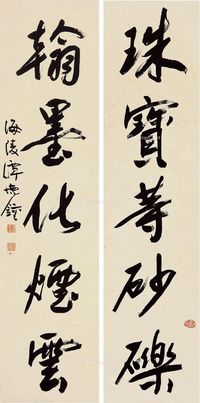 珠寶等砂礫
翰墨化煙雲
海陵譚